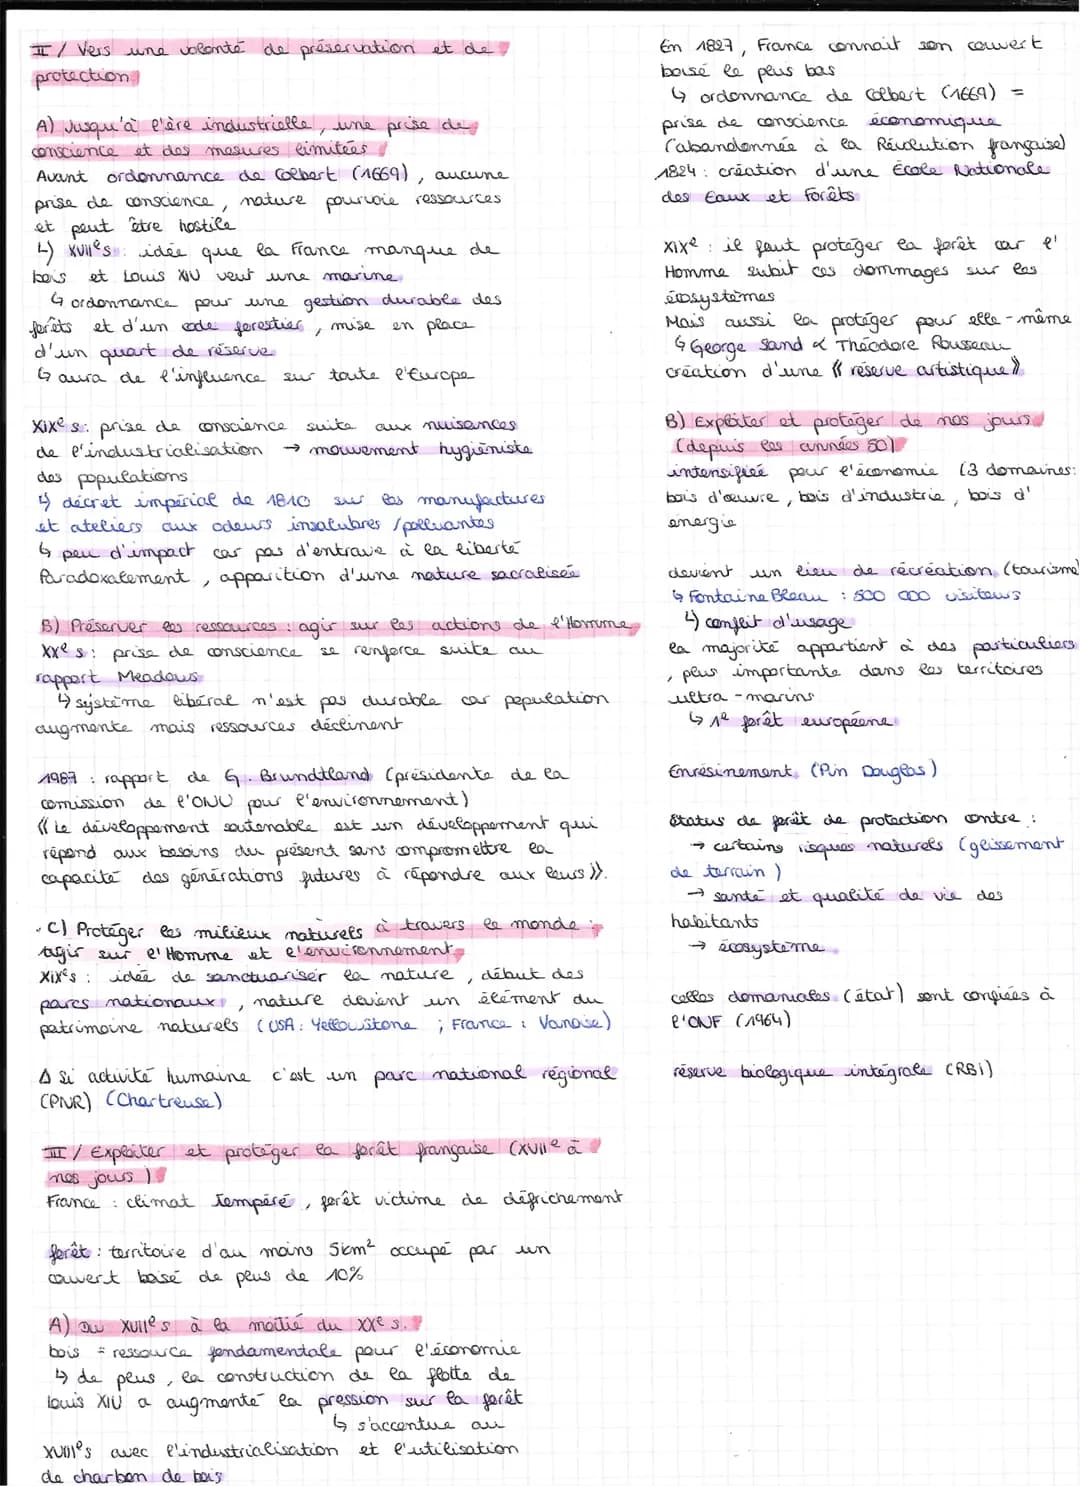 II / Vers une volonté de préservation et de
protection
A) Jusqu'à l'ère industrielle, une prise de
conscience et des mesures limitées
Avant ordonnance de Colbert (1669), aucune
prise de conscience, nature pourvoie ressources
et peut être hostile
↳ XVIIe s : idée que la France manque de
bois et Louis XIV veut une marine
↳ ordonnance pour une gestion durable des
forêts et d'un code forestier, mise en place
d'un quart de réserve
↳ aura de l'influence sur toute l'Europe
XIXe s : prise de conscience suite aux nuisances
de l'industrialisation → mouvement hygiéniste
des populations
↳ décret impérial de 1810 sur les manufactures
et ateliers aux odeurs insalubres / polluantes
↳ peu d'impact car pas d'entrave à la liberté
Paradoxalement, apparition d'une nature sacralisée
B) Préserver les ressources : agir sur les actions de l'Homme
XXe s : prise de conscience se renforce suite au
rapport Meadows
↳ système libéral n'est pas durable car population
augmente mais ressources déclinent
1987 : rapport de G. Brundtland (présidente de la
comission de l'ONU pour l'environnement)
« Le développement soutenable est un développement qui
répond aux besoins du présent sans compromettre la
capacité des générations futures à répondre aux leurs ».
C) Protéger les milieux naturels à travers le monde :
agir sur l'Homme et l'environnement
XIXe s : idée de sanctuariser la nature, début des
parcs nationaux, nature devient un élément du
patrimoine naturels (USA : Yellowstone ; France : Vanoise)
Δ Si activité humaine c'est un parc national régional
(PNR) (Chartreuse)
III / Exploiter et protéger la forêt française (XVIIe à
nos jours)
France : climat tempéré, forêt victime de défrichement
forêt : territoire d'au moins 5km² occupé par un
couvert boisé de plus de 10%
A) Du XVIIe s à la moitié du XXe s.
bois = ressource fondamentale pour l'économie
↳ de plus, la construction de la flotte de
Louis XIV a augmenté la pression sur la forêt
↳ s'accentue au
XVIIIe s avec l'industrialisation et l'utilisation
de charbon de bois
En 1827, France connait son couvert
boisé le plus bas
↳ ordonnance de Colbert (1669) =
prise de conscience économique
(abandonnée à la Révolution française)
1824 : création d'une École Nationale
des Eaux et Forêts
XIXe : il faut protéger la forêt car l'
Homme subit ces dommages sur les
écosystèmes
Mais aussi la protéger pour elle-même
↳ George Sand & Théodore Rousseau
création d'une « réserve artistique »
B) Exploiter et protéger de nos jours
(depuis les années 50)
intensifiée pour l'économie (3 domaines :
bois d'œuvre, bois d'industrie, bois d'
énergie
devient un lieu de récréation (tourisme)
↳ FontaineBleau : 500 000 visiteurs
↳ conflit d'usage
la majorité appartient à des particuliers
, plus importante dans les territoires
ultra-marins
↳ 1e forêt européene
Enrésinement (Pin Douglas)
Status de forêt de protection contre :
→ certains risques naturels (glissement
de terrain)
→ santé et qualité de vie des
habitants
→ écosystème
celles domaniales (état) sont confiées à
l'ONF (1964)
réserve biologique intégrale (RBI)